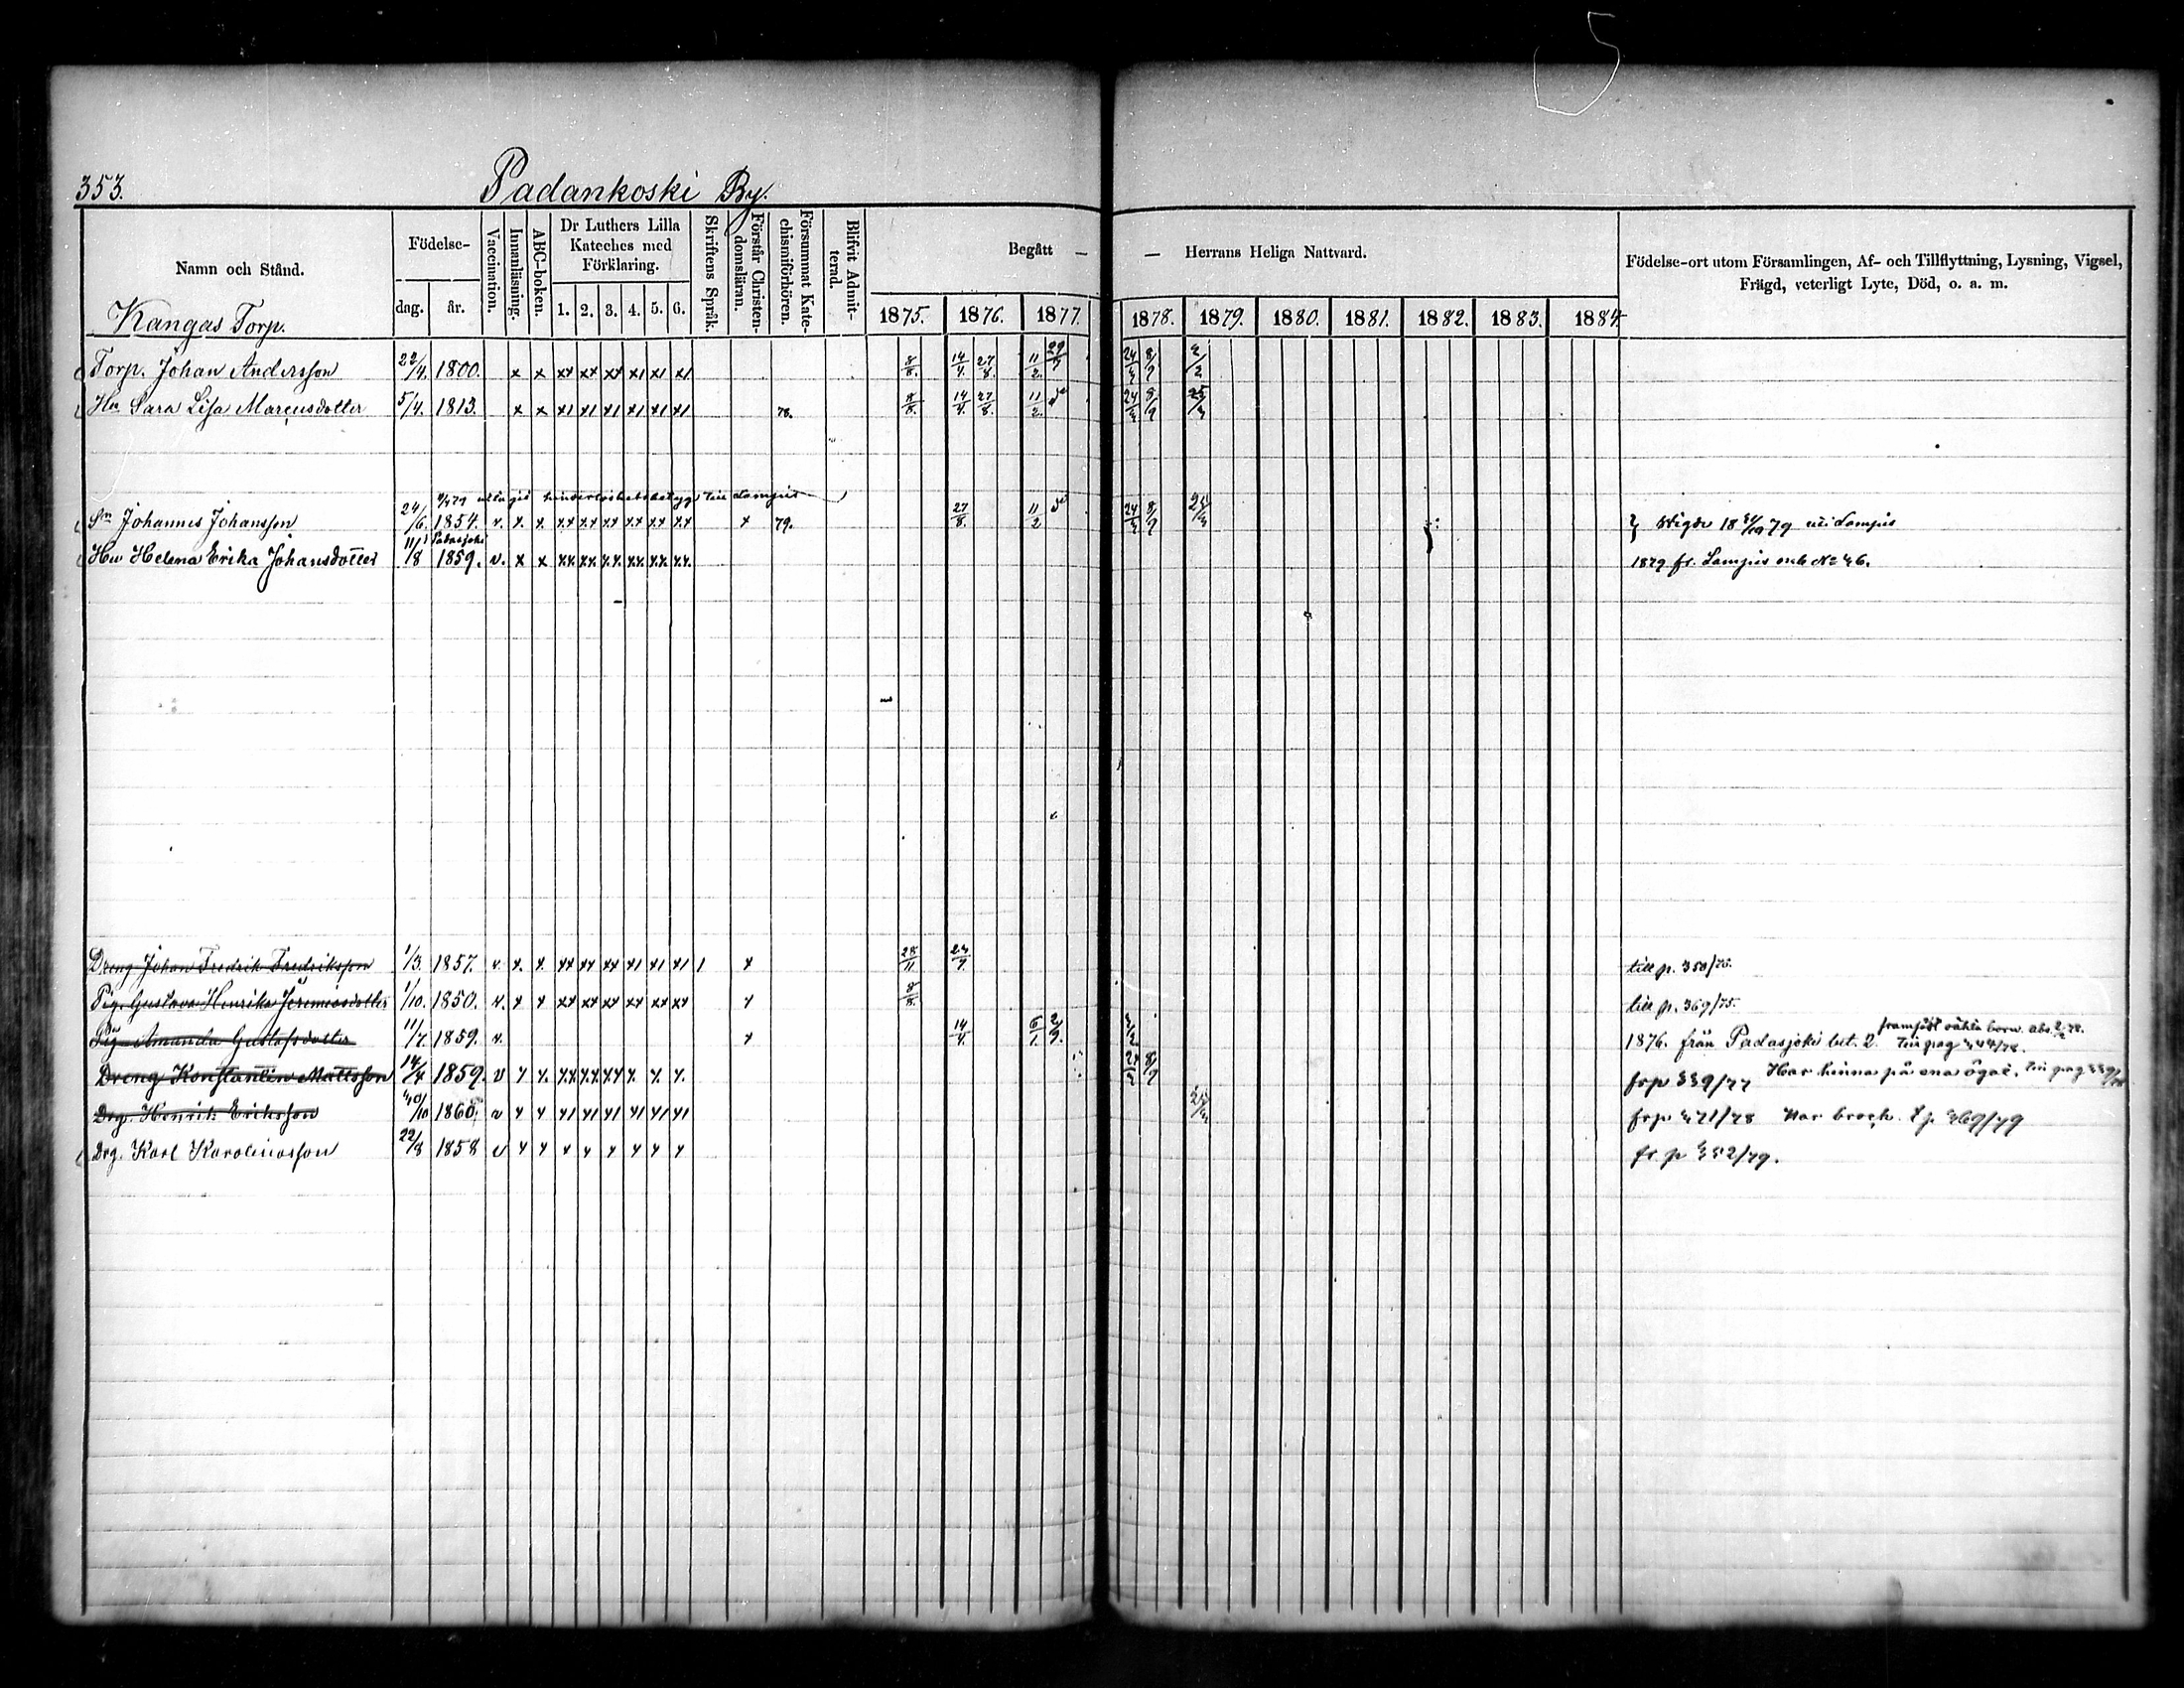 353.
Padankoski By.
Namn och Stånd.
Födelse-
dag.
år.
Vaccination.
Innanläsning.
ABC-boken.
Dr Luthers Lilla
Kateches med
Förklaring.
1. 2. 3. 4. 5. 6.
Skriftens Språk.
Förstår Christen-
domsläran.
Försummat Kate-
chismiförhören.
Blifvit Admit-
terad.
Begått —
— Herrans Heliga Nattvard.
1875. 1876. 1877. 1878. 1879. 1880. 1881. 1882. 1883. 1884.
Födelse-ort utom Församlingen, Af- och Tillflyttning, Lysning, Vigsel,
Frägd, veterligt Lyte, Död, o. a. m.
Kangas Torp.
Torp. Johan Andersson 22/4. 1800. x x xx xx xx x1 x1 x1 8/8. 14/4. 27/8. 11/2. 24/3 8/9
Hu Sara Lisa Marcusdotter 5/4. 1813. x x x1 x1 x1 x1 x1 x1 78. 8/8. 14/4. 27/8. 11/2. 24/3 8/9 25/3
uttagit hinderlöshetsbetyg till Lampis
Sn Johannes Johansson 24/6. 1854. v. x. x. xx xx xx xx xx xx x 79. 27/8. 11/2 24/3 8/9 25/3 Vigde 1879 i Lampis
Padasjoki
Hu Helena Erika Johansdotter 11/8 1859. v. x x xx. xx. xx. xx. xx. xx. 1879 fr. Lampis enl. No 46.
Dreng Johan Fredrik Fredriksson 1/3. 1857. v. x. x. xx xx xx x1 x1 x1 1 x 28/11 till p. 350/75.
Pig. Gustava Henrika Jeremiasdotter 1/10. 1850. v. x x xx xx xx xx xx xx x 8/8. till p. 369/75.
framfödt oäkta barn abs.
Pig Amanda Gustafsdotter 11/7. 1859. v. x 14/4. 1876. från Padasjoki bet. 2. Till pag 344/78.
Dreng Konstantin Mattsson 14/4 1859. v x x. xx xx xx x. x. x. 24/3 8/9 frp 339/77 Har hinna på ena ögat.
Drg. Henrik Eriksson 1860. v x x x1 x1 x1 x1 x1 x1 25/3 frp 371/78 Har bråck. t p. 369/79
Drg. Karl Karolinasson 22/8 1858 v x x x x x x x x fr. p 352/79.